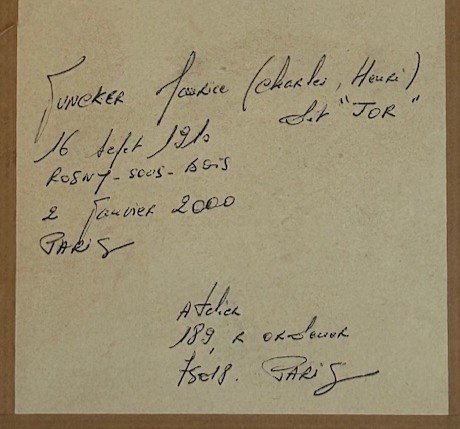 JUNCKER Maurice (Charles, Henri)
dit "JOR"
16 Sept 1910
ROSNY-SOUS-BOIS
2 Janvier 2000
PARIS
Atelier
189, R ORDENER
75018. PARIS